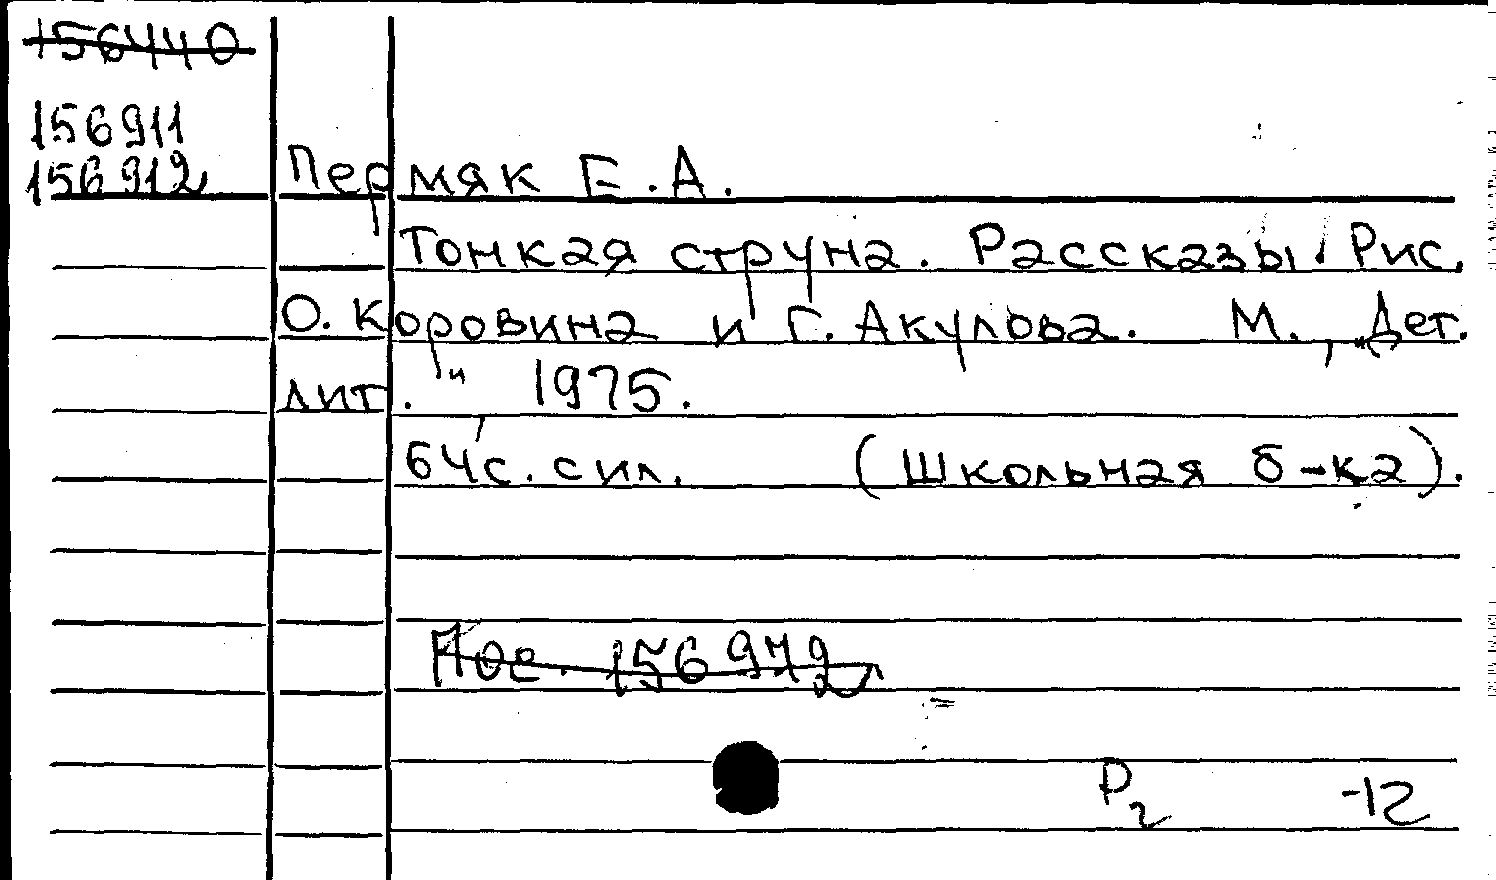 156440
156911
156912
Пермяк Е.А.
Тонкая струна. Рассказы. Рис.
О. Коровина и Г. Акулова. М., „Дет.
лит." 1975.
64с. с ил. (Школьная б-ка).
156972
Р2 -12